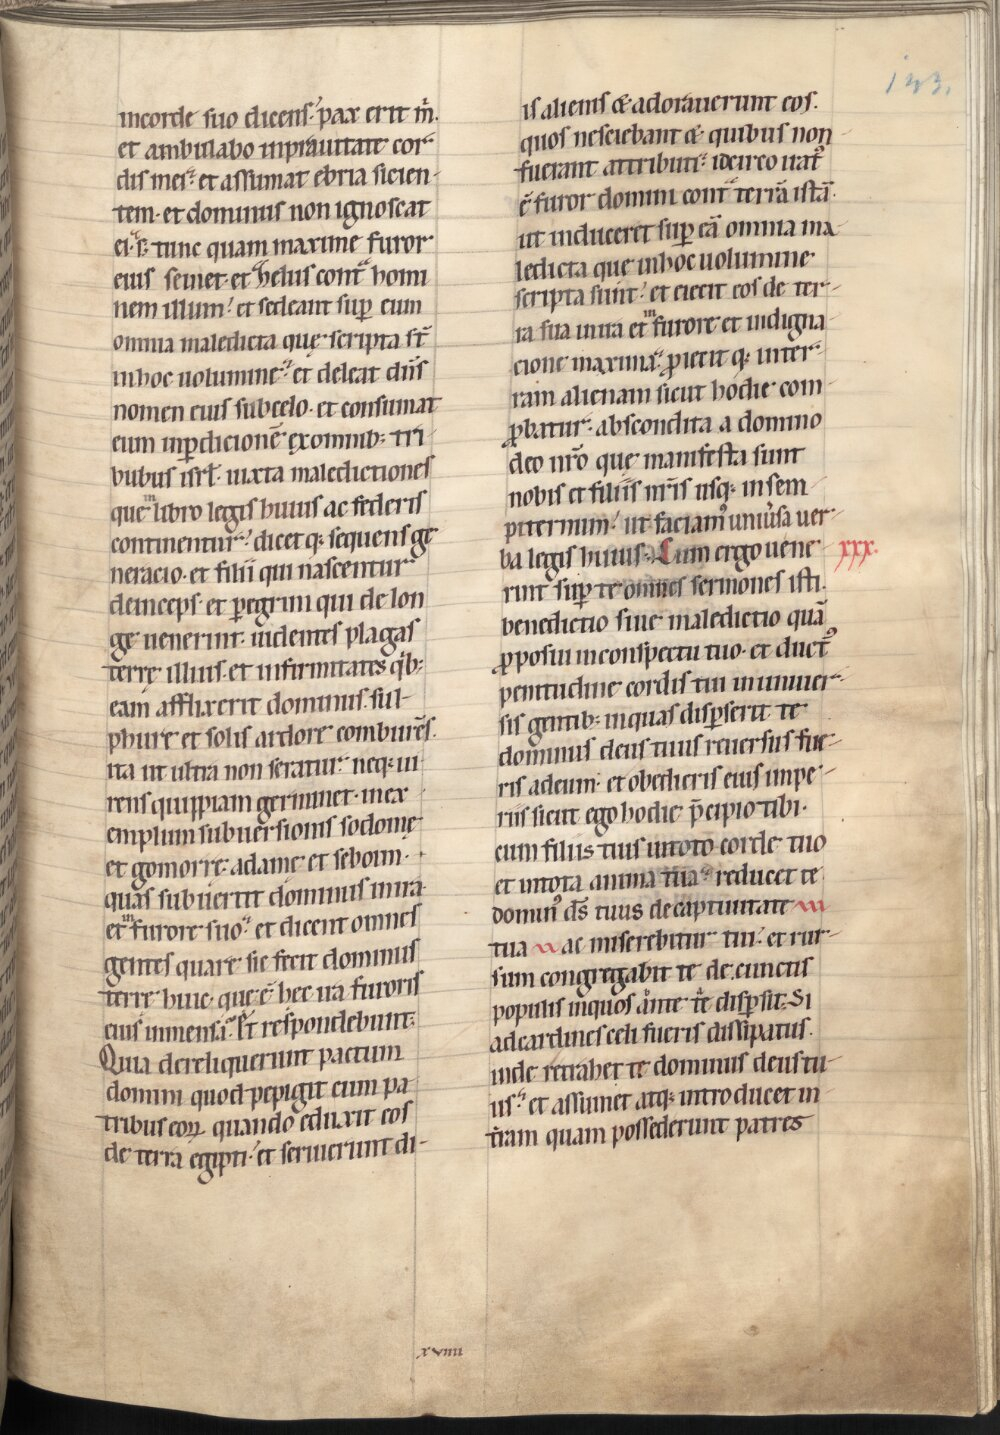 143.
incorde suo dicens. pax erit m̄.
et ambulabo inprauitate cor
dis mei. et assumat ebria sicien-
tem. et dominus non ignoscat
ei. s; tunc quam maxime furor
eius seuiet. et zelus contͣ homi
nem illum. et sedeant suꝑ eum
omnia maledicta quę scripta st̄
inhoc uolumine. et deleat dn̄s
nomen eius subcelo. et consumat
eum inꝑdicionē exomnib; tri
bubus isrł. iuxta maledictiones
que ᵐ libro legis huius ac federis
continentur. dicet q; sequens ge
neracio. et filii qui nascentur
deinceps. et ꝑegrini qui de lon
ge uenerint. uidentes plagas
terrę illius. et infirmitates qͥb;
eam afflixerit dominus. sul-
phure et solis ardore comburēs.
ita ut ultra non seratur. neq; ui
rens quippiam germinet. inex
emplum subuersionis sodomę
et gomorre. adame et seboim.
quas subuertit dominus inira
et ᵐ furore suo. et dicent omnes
gentes quare sic fecit dominus
terre huic. que ē hec ira furoris
eius inmensa. Et respondebunt.
Quia dereliquerunt pactum
domini quod pepigit cum pa
tribus eoꝝ quando eduxit eos
de terra egipti. et seruierunt di-
is alienis & adorauerunt eos.
quos nesciebant & quibus non
fuerant attributi. idcirco iratꝰ
ē furor domini contͣ terrā istā.
ut induceret suꝑ eā omnia ma
ledicta que inhoc uolumine
scripta sunt. et eiecit eos de ter-
ra sua inira et ᵐ furore et indigna
cione maxima. ꝓiecit q; inter
ram alienam sicut hodie com
ꝓbatur. abscondita a domino
deo nr̄o que manifesta sunt
nobis et filiis nr̄is usq; insem
piternum. ut faciamꝰ uniu̾sa uer
ba legis huius. Cum ergo uene
xxx.
rint suꝑ te omnes sermones isti.
benedictio siue maledictio quā
ꝓposui inconspectu tuo. et ductꝰ
penitudine cordis tui inuniuer-
sis gentib; inquas disꝑserit te
dominus deus tuus reuersus fue
ris adeum. et obedieris eius impe
riis sicut ego hodie p̄cipio tibi.
cum filiis tuis intoto corde tuo
et intota anima tua. reducet te
dominꝰ ds̄ tuus decaptiuitate
tua ac miserebitur tui. et rur-
sum congregabit te de cunctis
populis inquos ante te disꝑsit. Si
adcardines celi fueris dissipatus.
inde retrahet te dominus deus tu
us. et assumet atq; introducet in
t̄ram quam possederunt patres
xviiii